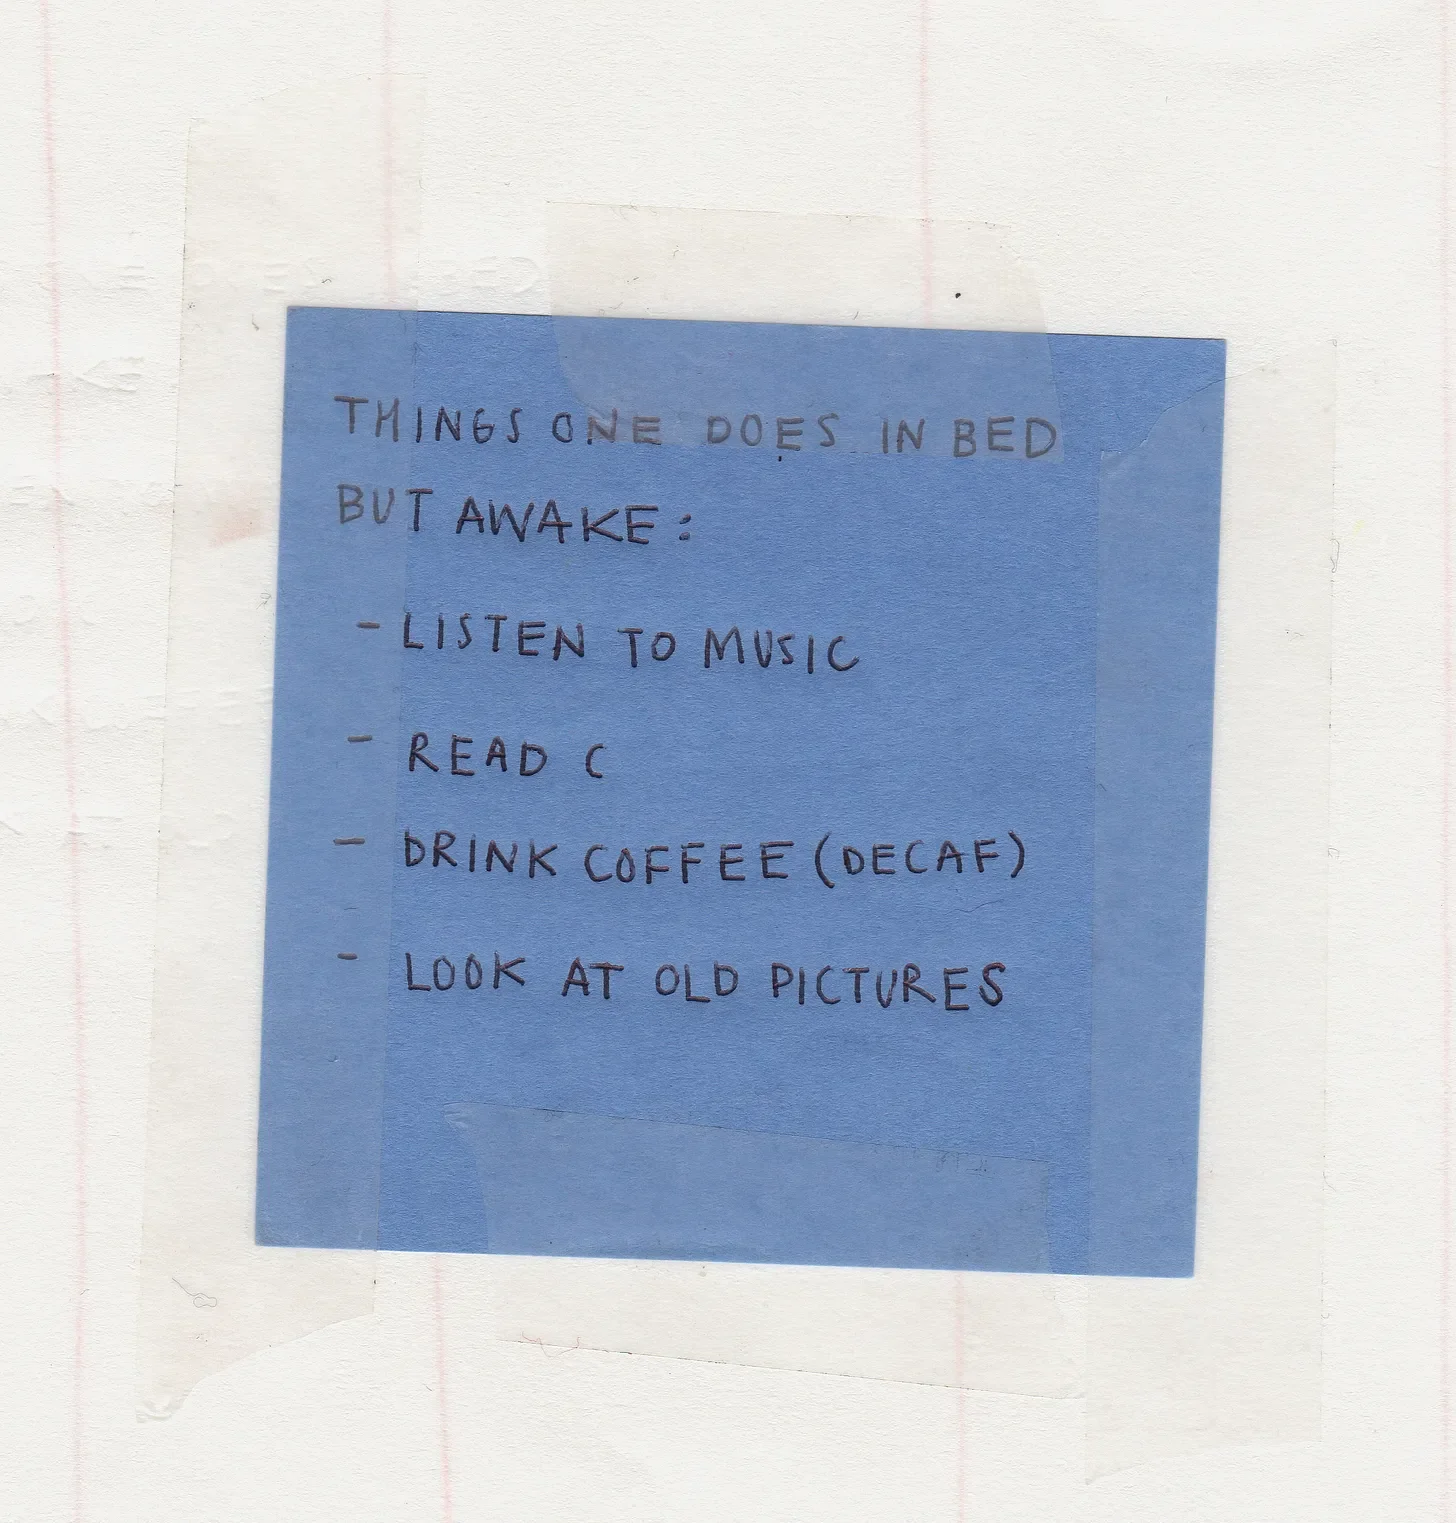 THINGS ONE DOES IN BED
BUT AWAKE:
- LISTEN TO MUSIC
- READ C
- DRINK COFFEE (DECAF)
- LOOK AT OLD PICTURES